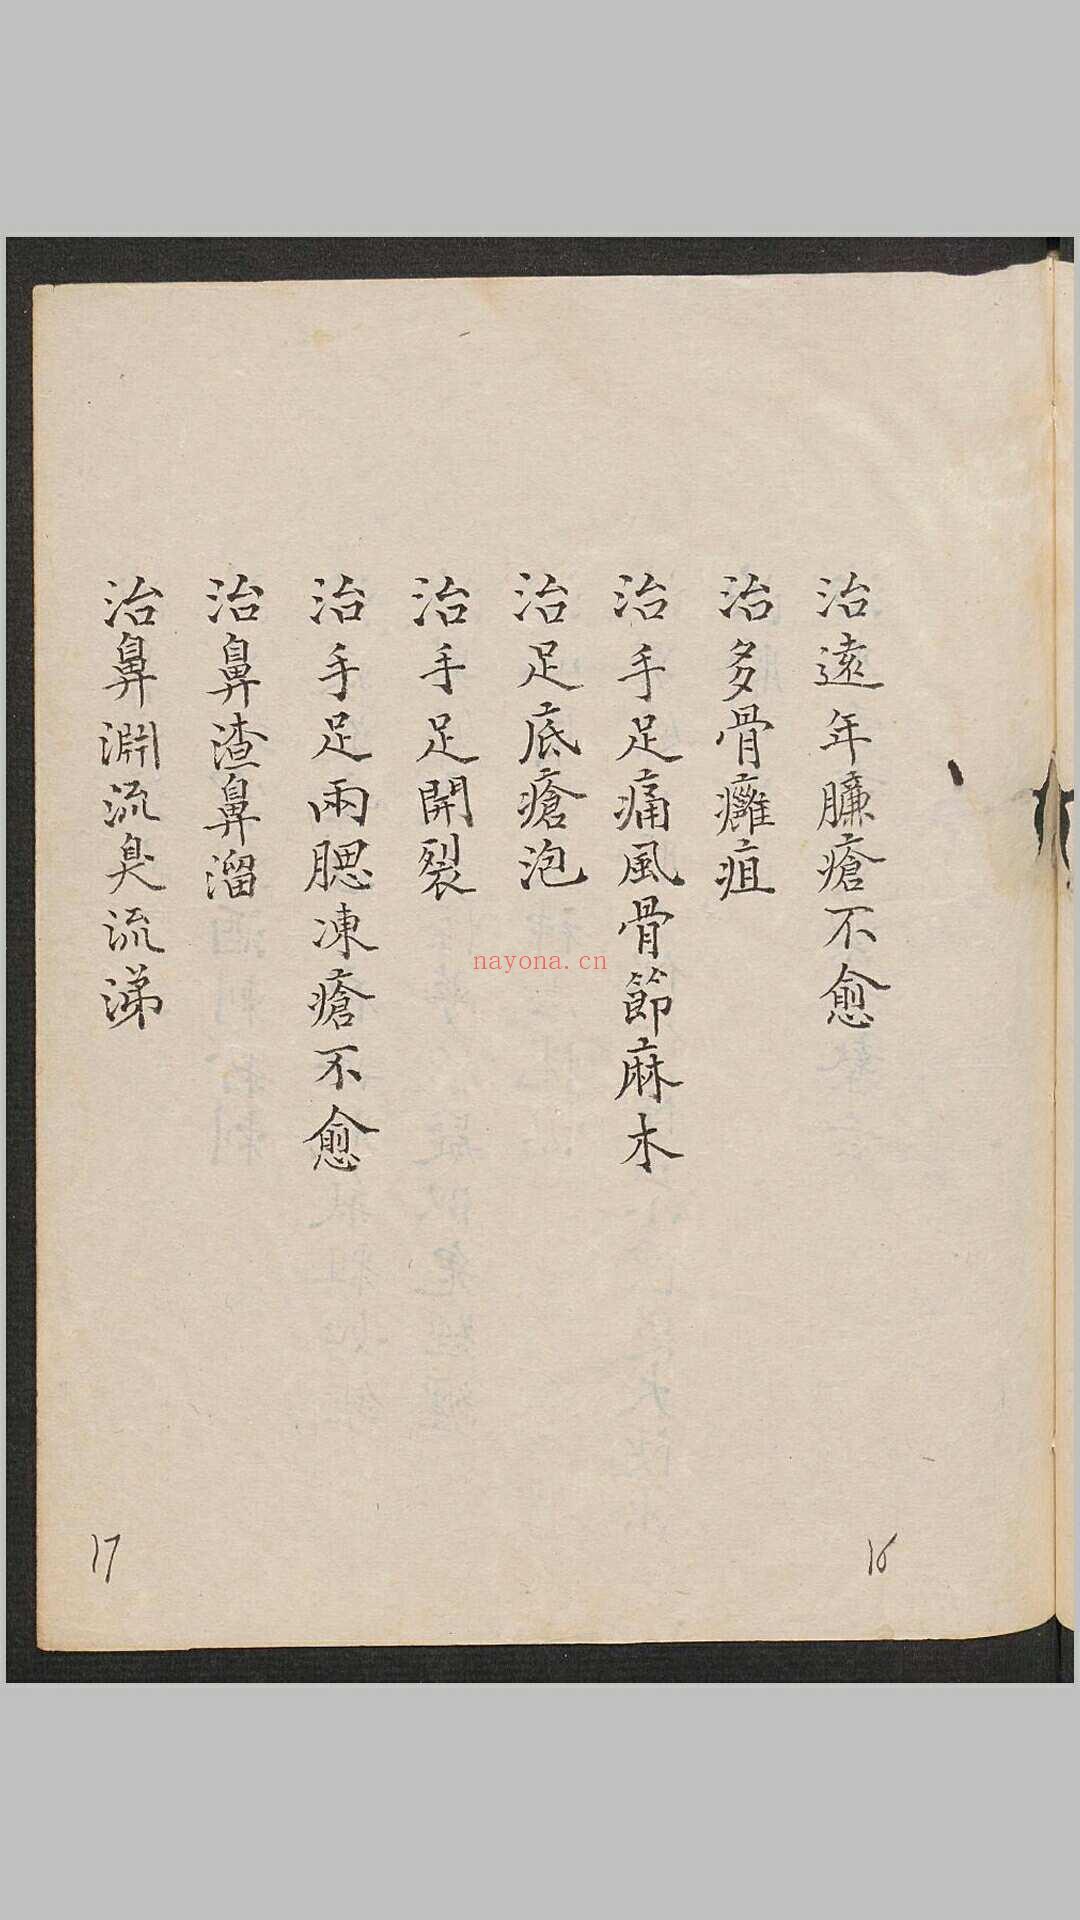 治遠年臁瘡不愈
治多骨癰疽
治手足痛風骨節麻木
治足底瘡泡
治手足開裂
治手足兩腮凍瘡不愈
治鼻渣鼻溜
治鼻淵流臭流涕
16
17
nayona.cn